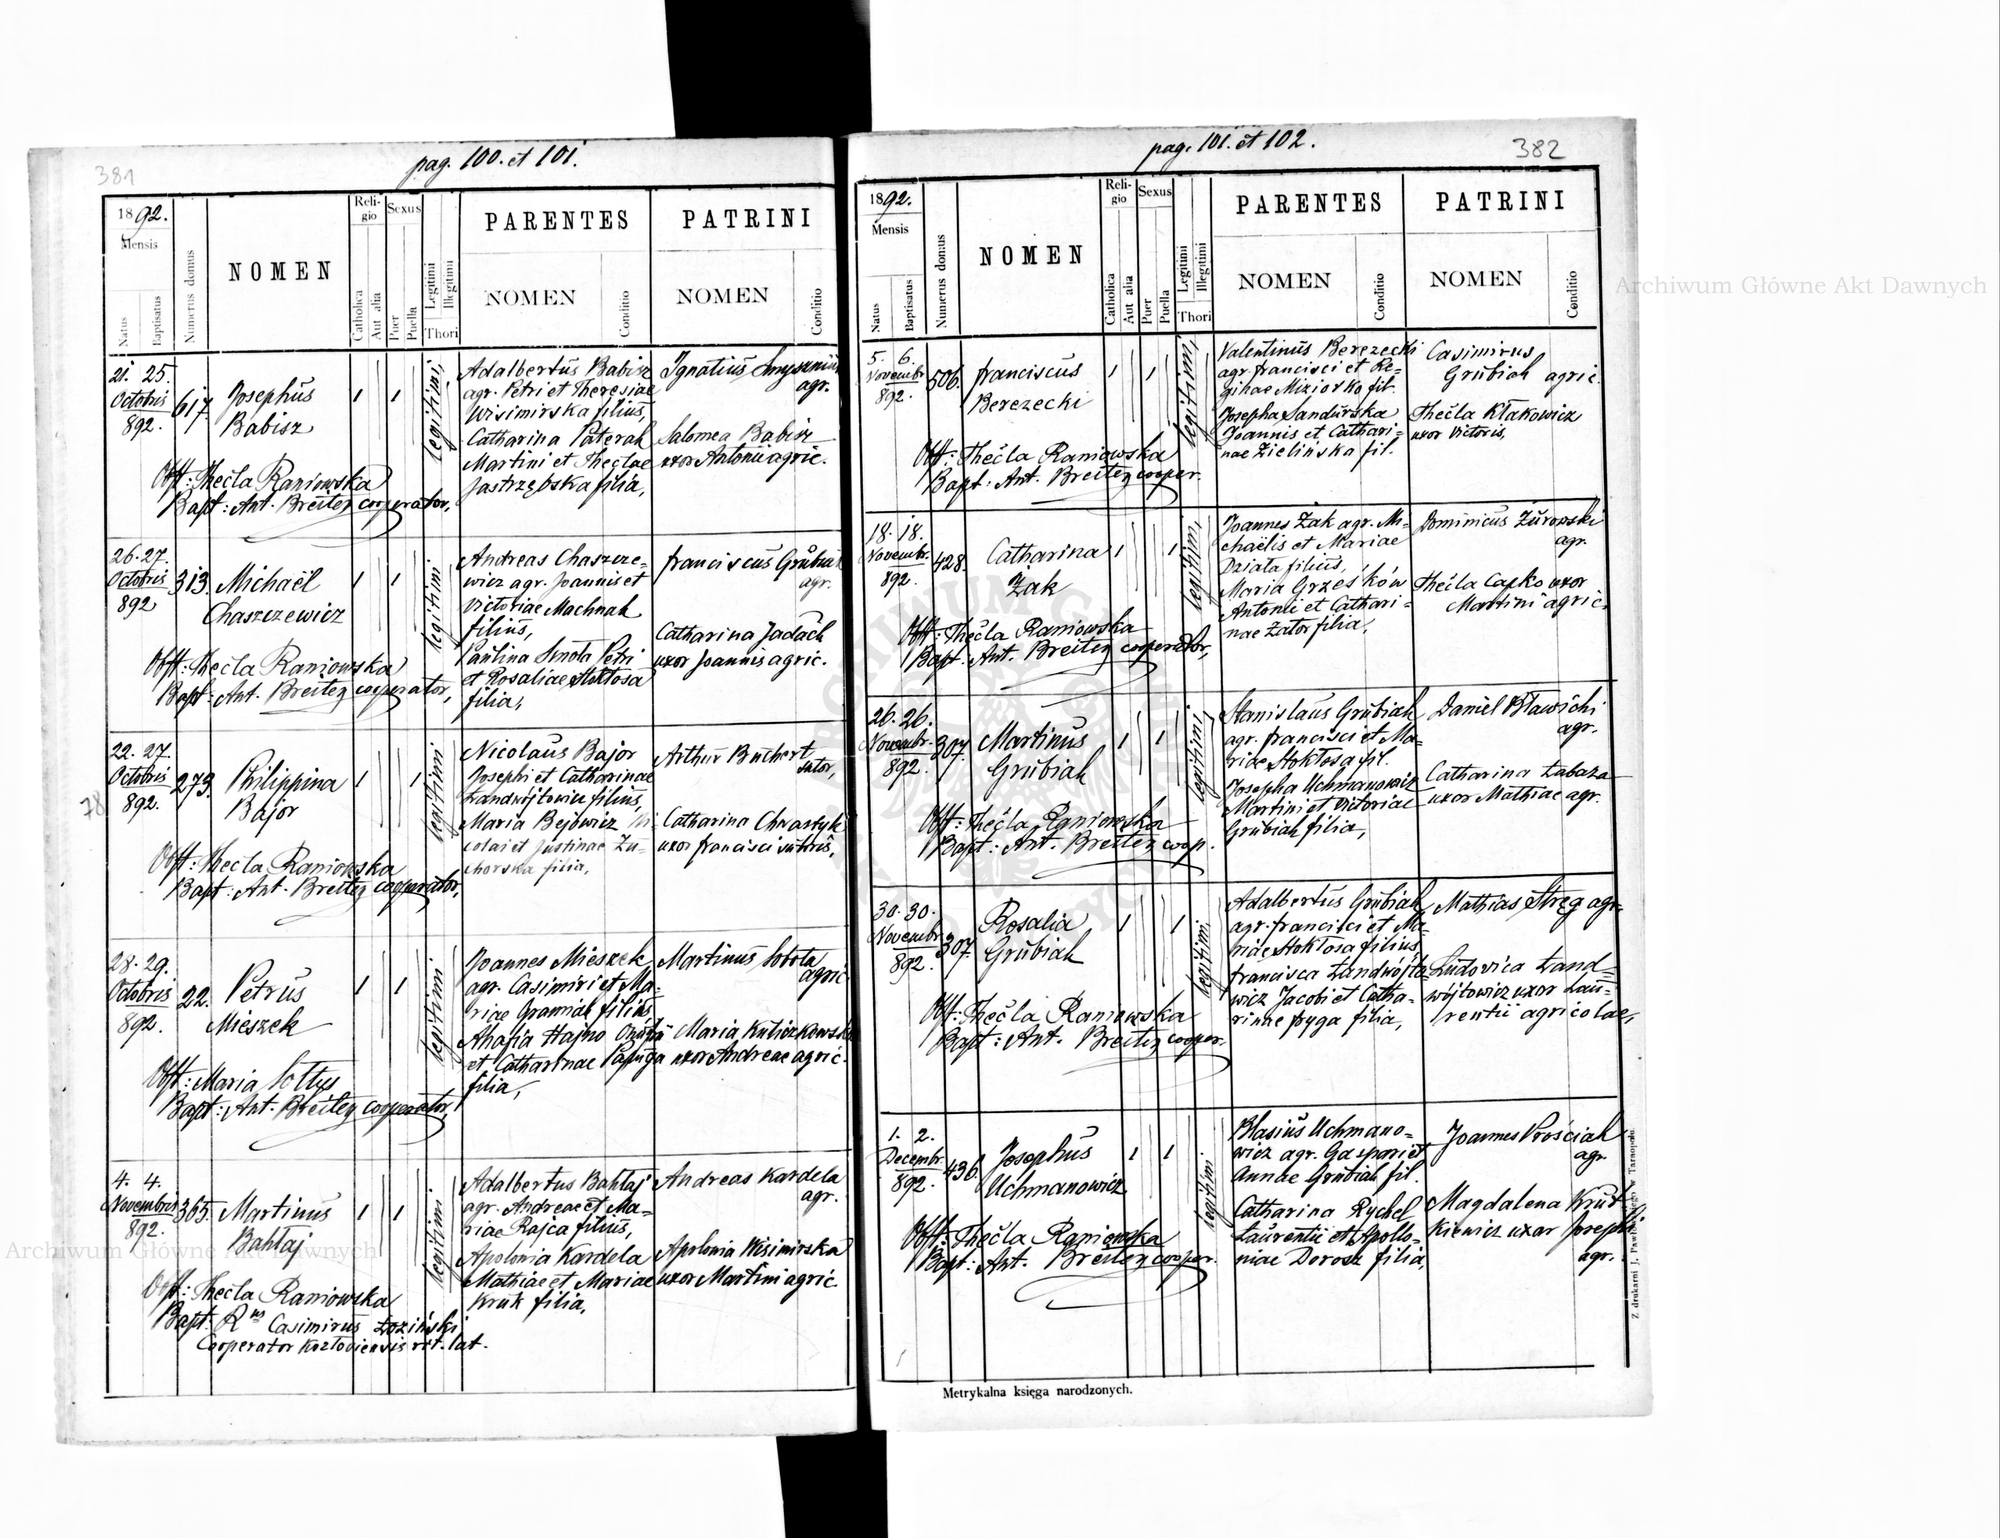 381
pag. 100. et 101.
1892.
Mensis
Natus
Baptisatus
Numerus domus
NOMEN
Religio
Catholica
Aut alia
Sexus
Puer
Puella
Legitimi
Illegitimi
Thori
PARENTES
NOMEN
Conditio
PATRINI
NOMEN
Conditio
21. 25.
Octobris
892.
617
Josephus
Babisz
1
1
legitimi,
Adalbertus Babisz
agr. Petri et Theresiae
Wisimirska filius,
Catharina Paterak
Martini et Theclae
Jastrzębska filia,
Ignatius
agr.
Salomea Babisz
uxor Antonii agric.
Obst: Thecla Raniowska
Bapt: Ant. Breiter cooperator,
26. 27.
Octobris
892
313.
Michaël
Chaszczewicz
1
1
legitimi
Andreas Chaszcze=
wicz agr. Joannis et
Victoriae Machnak
filius,
Paulina Smota Petri
et Rosaliae Stoktosa
filia,
Franciscus Grubiak
agr.
Catharina Jadach
uxor Joannis agric.
Obst: Thecla Raniowska
Bapt: Ant. Breiter cooperator,
78
22. 27.
Octobris
892.
273.
Philippina
Bajor
1
1
legitimi
Nicolaus Bajor
Josephi et Catharinae
Landwójtowicz filius,
Maria Bejowicz Ni=
colai et Justinae Zu=
chorska filia,
Arthur Buchert
sutor,
Catharina Chrastyk
uxor Francisci sutoris,
Obst: Thecla Raniowska
Bapt: Ant. Breiter cooperator,
28. 29.
Octobris
892.
22.
Petrus
Mieszek
1
1
legitimi
Joannes Mieszek
agr. Casimiri et Ma=
riae Gramiak filius
Ahafia Hajno
et Catharinae Papuga
filia,
Martinus Sobota
agric.
Maria
uxor Andreae agric.
Obst: Maria Sołtys
Bapt: Ant. Breiter cooperator,
4. 4.
Novembris
892.
365.
Martinus
Bahtaj
1
1
legitimi
Adalbertus Bahtaj
agr. Andreae et Ma=
riae Rajca filius,
Apolonia Kardela
Mathiae et Mariae
Kruk filia,
Andreas Kardela
agr.
Apolonia Wisimirska
uxor Martini agric.
Obst: Thecla Raniowska
Bapt: Rns Casimirus Łoziński
Cooperator Kozłoviensis rit. lat.
pag. 101. et 102.
382
1892.
Mensis
Natus
Baptisatus
Numerus domus
NOMEN
Religio
Catholica
Aut alia
Sexus
Puer
Puella
Legitimi
Illegitimi
Thori
PARENTES
NOMEN
Conditio
PATRINI
NOMEN
Conditio
5. 6.
Novembr.
892.
506.
Franciscus
Berezecki
1
1
legitimi,
Valentinus Berezecki
agr. Francisci et Re=
ginae Miziorka fil.
Josepha Sandurska
Joannis et Cathari=
nae Zielińska fil.
Casimirus
Grubiak agric.
Thecla Kłakowicz
uxor Victoris,
Obst: Thecla Raniowska
Bapt: Ant. Breiter cooper.
18. 18.
Novembr.
892.
428.
Catharina
Żak
1
1
legitimi,
Joannes Żak agr. Mi=
chaëlis et Mariae
Dziata filius,
Maria Grześków
Antonii et Cathari=
nae Zator filia,
Dominicus Żurowski
agr.
Thecla Capko uxor
Martini agric.
Obst: Thecla Raniowska
Bapt: Ant. Breiter cooperator,
26. 26.
Novembr.
892.
307.
Martinus
Grubiak
1
1
legitimi
Stanislaus Grubiak
agr. Francisci et Ma=
riae Stoktosa fil.
Josepha Uchmanowicz
Martini et Victoriae
Grubiak filia,
Daniel Bławicki
agr.
Catharina Łabaza
uxor Mathiae agr.
Obst: Thecla Raniowska
Bapt: Ant. Breiter coop.
30. 30.
Novembr.
892.
307.
Rosalia
Grubiak
1
1
legitimi.
Adalbertus Grubiak
agr. Francisci et Ma=
riae Stoktosa filius,
Francisca Landwójto=
wicz Jacobi et Catha=
rinae Fryga filia,
Mathias Stręg agr.
Ludovica Land=
wójtowicz uxor Lau=
rentii agricolae,
Obst: Thecla Raniowska
Bapt: Ant. Breiter cooper.
1. 2.
Decembr.
892.
436.
Josephus
Uchmanowicz
1
1
legitimi
Blasius Uchmano=
wicz agr. Gaspari et
Annae Grubiak fil.
Catharina Rychel
Laurentii et Apollo=
niae Dorosz filia
Joannes Prościak
agr.
Magdalena Krut
kiewicz uxor Josephi
agr.
Obst: Thecla Raniowska
Bapt: Ant. Breiter cooper.
Metrykalna księga narodzonych.
Z drukarni J. Pawłowskiego w Tarnopolu.
Archiwum Główne Akt Dawnych
Archiwum Główne Akt Dawnych